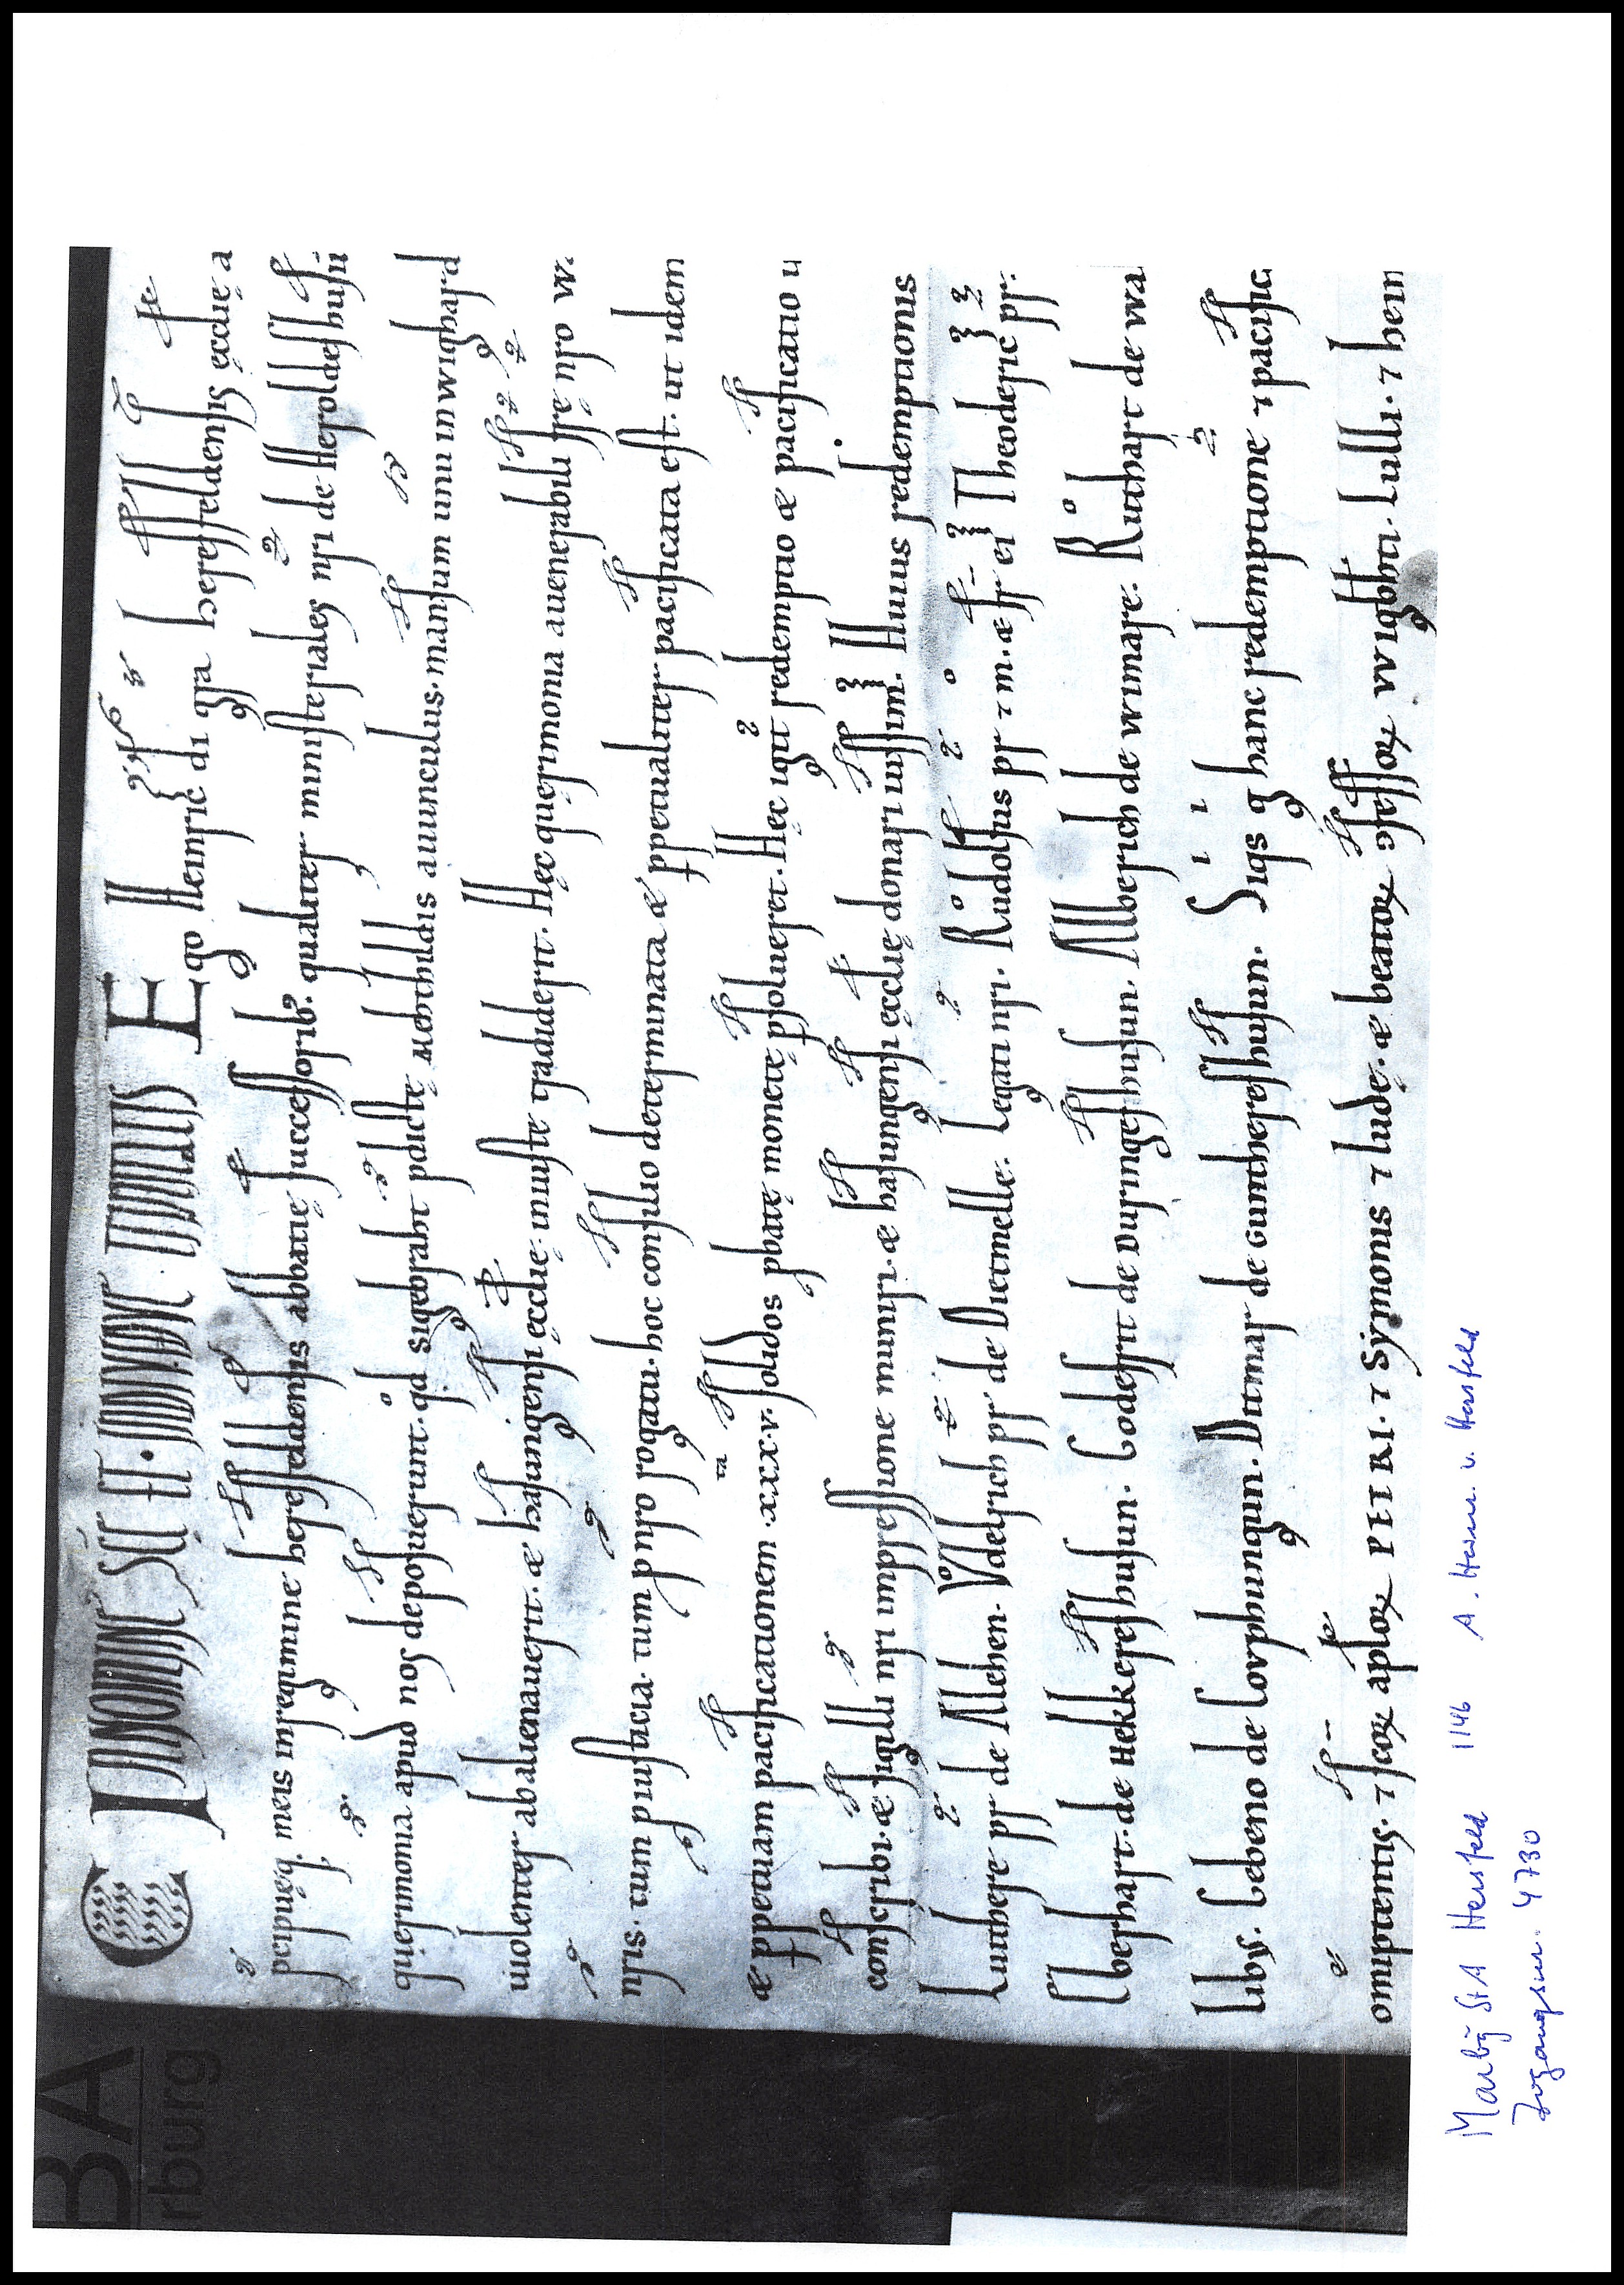 BA
rburg
IN NOMINE SCE ET INDIVIDVE TRINITATIS Ego Heinric dī gra heresfeldensis ecclie a
meis in regimine heresfeldensis abbatie successorib; qualiter ministeriales nri de Heroldeshusu
querimonia apud nos deposuerunt. qd sigebraht Methildis auunculus. mansum unu in wighard
uiolenter abalienauerit. & hasungensi ecclie. iniuste tradiderit. Hec querimonia a uenerabili fre nro
nris. tum p iusticia. tum p nro rogatu. hoc consilio determinata & ppetualiter pacificata est. ut idem
& ppetuam pacificationem .xxx.v. solidos pbate monete psolueret. Hec igit redemptio & pacificatio
conscribi. & sigilli nri impressione muniri. & hasungensi ecclie donari iussim. Huius redemptionis
Luthere pr de Alehen. Vdelrich pr de Dietmelle. Legati nri. Rudolfus pr 7 m. & fr ei Theoderic pr.
Eberhart. de Hekkereshusun. Godefrit de Duringeshusun. Alberich de Wimare. Ruthart de
liby. Gebeno de Gouphungun. Ditmar de Gunthereshusun. Siqs g hanc redemptione 7 pacifica
omiptentis. 7 scox aplox PETRI. 7 Symonis 7 Iude. & beatox cfessox Wigbti. Lulli. 7 hem
Marbg StA Hersfeld 1146 A. Heinr. v. Hersfeld
Zugangsnr. 4730